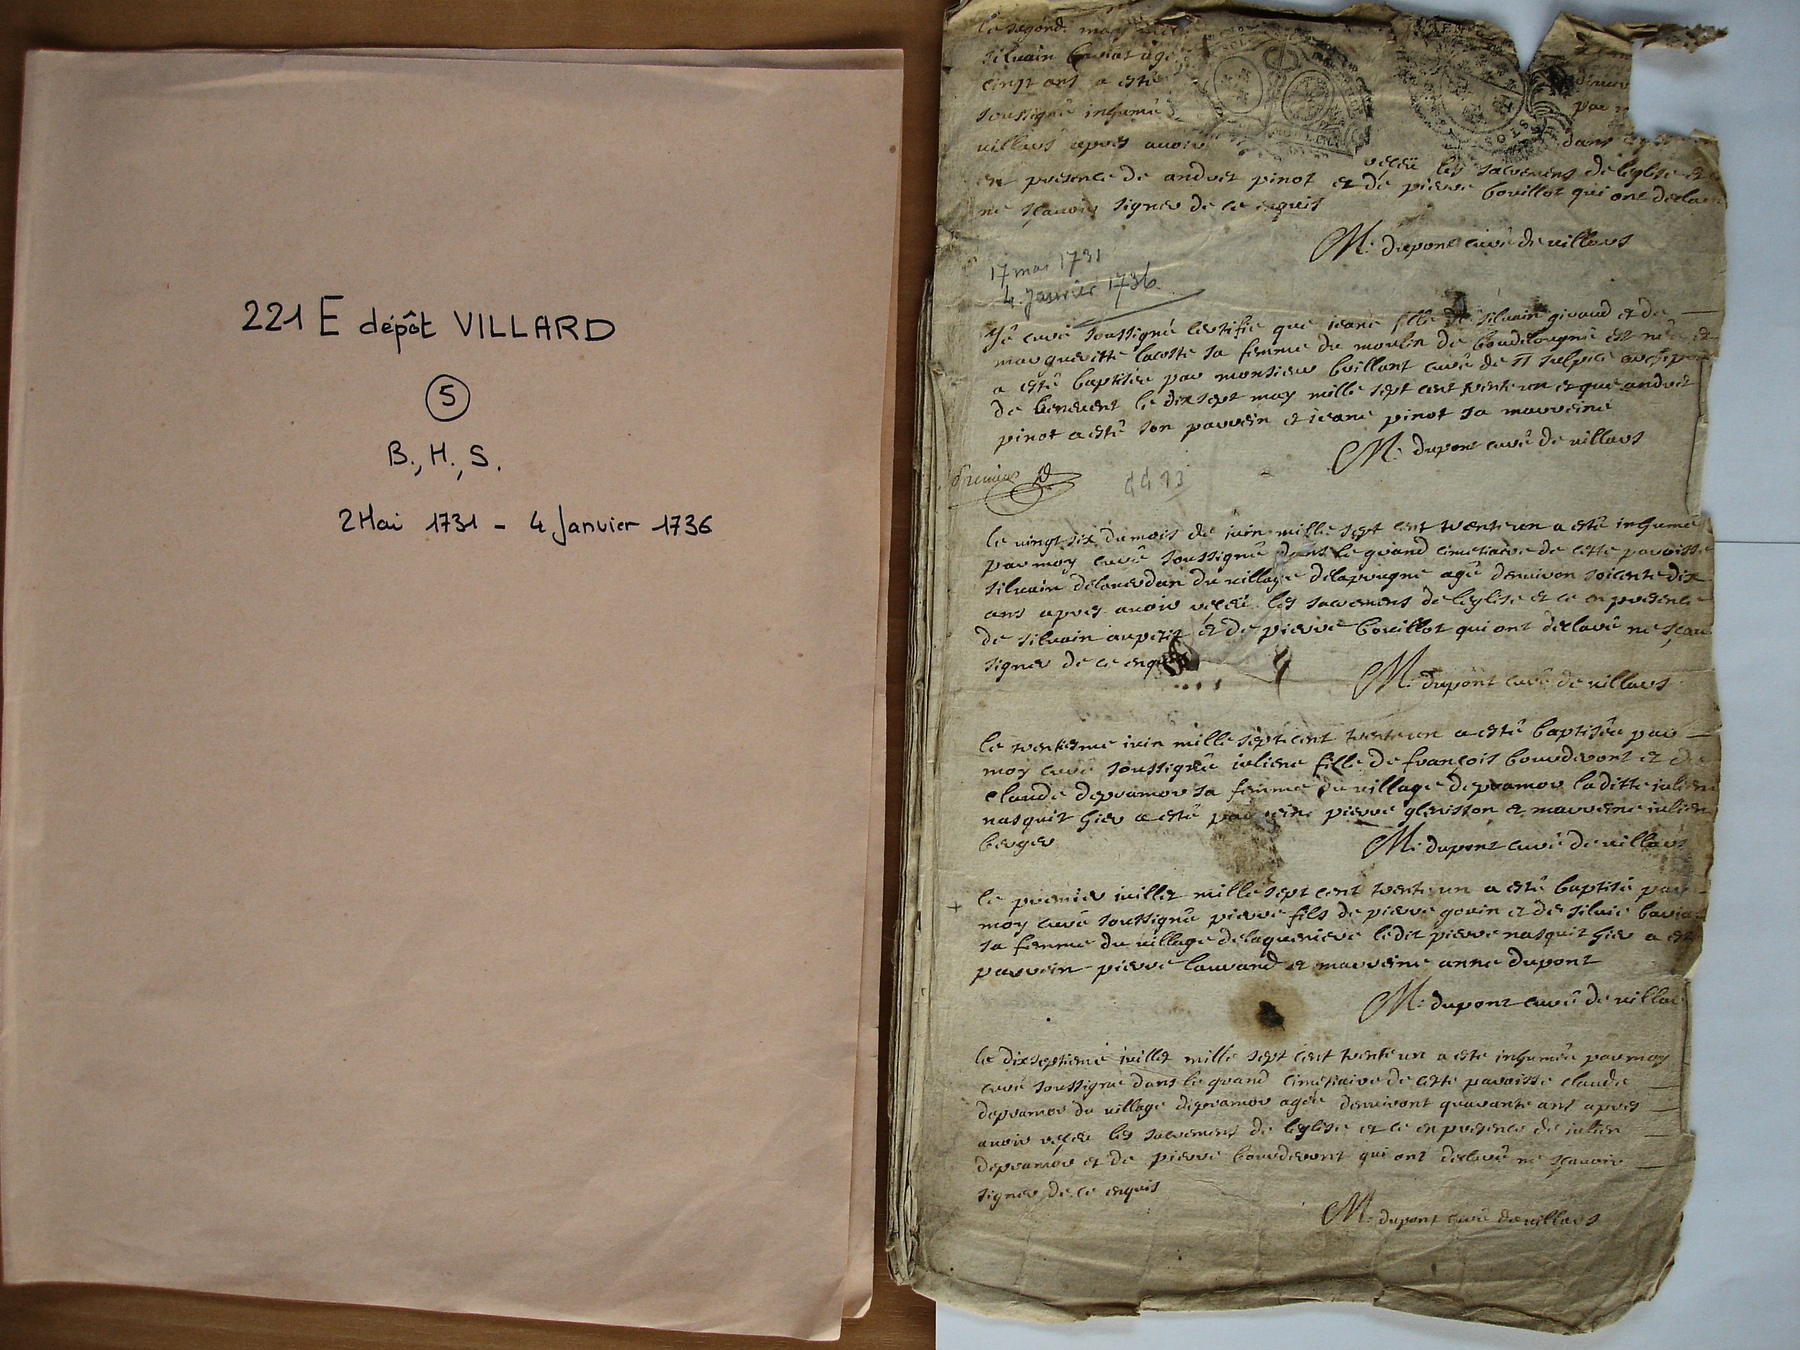 221 E dépôt VILLARD
5
B., H., S.
2 Mai 1731 - 4 Janvier 1736
le segond may
silvain agé
vingt ans a esté
soussigné inhumé
villars apres avoir dans
receu les sacremens de leglise et
en presence de andret pinot et de pierre bouillot qui ont declaré
ne sçavoir signer de ce enquis
M: dupont curé de villars
17 mai 1731
4 janvier 1736
Je curé soussigné certifie que jeane fille de silvain giraud et de
margueritte lacoste sa femme du moulin de est née et
a esté baptisée par monsieur curé de st sulpice
de benevent le dix sept may mille sept cent trente un et que andret
pinot a esté son parrein et jeane pinot sa marreine
M: dupont curé de villars
premier
le vingt six du mois de juin mille sept cent trente un a esté inhumé
par moy curé soussigné dans le grand cimetiaire de cette paroisse
silvain du village agé denviron soicente dix
ans apres avoir receu les sacremens de leglise et ce en presence
de silvain aupetit et de pierre bouillot qui ont declaré ne sçavoir
signer de ce enquis
M: dupont curé de villars
le trentiesme juin mille sept cent trente un a esté baptisée par
moy curé soussigné juliene fille de françois bourderont et de
claude depramor sa femme du village depramor laditte juliene
nasquit hier a esté parrein pierre glenisson et marreine juliene
berger
M: dupont curé de villars
le premier juillet mille sept cent trente un a esté baptisé par
moy curé soussigné pierre fils de pierre gouin et de silvie
sa femme du village delaqueriere ledit pierre nasquit hier a esté
parrein pierre laurand et marreine anne dupont
M: dupont curé de villars
le dixseptieme juillet mille sept cent trente un a esté inhumée par moy
curé soussigné dans le grand cimetiaire de cette paroisse claude
depramor du village depramor agée denviront quarante ans apres
avoir receu les sacremens de leglise et ce en presence de julien
depramor et de pierre bourderont qui ont declaré ne sçavoir
signer de ce enquis
M: dupont curé de villars